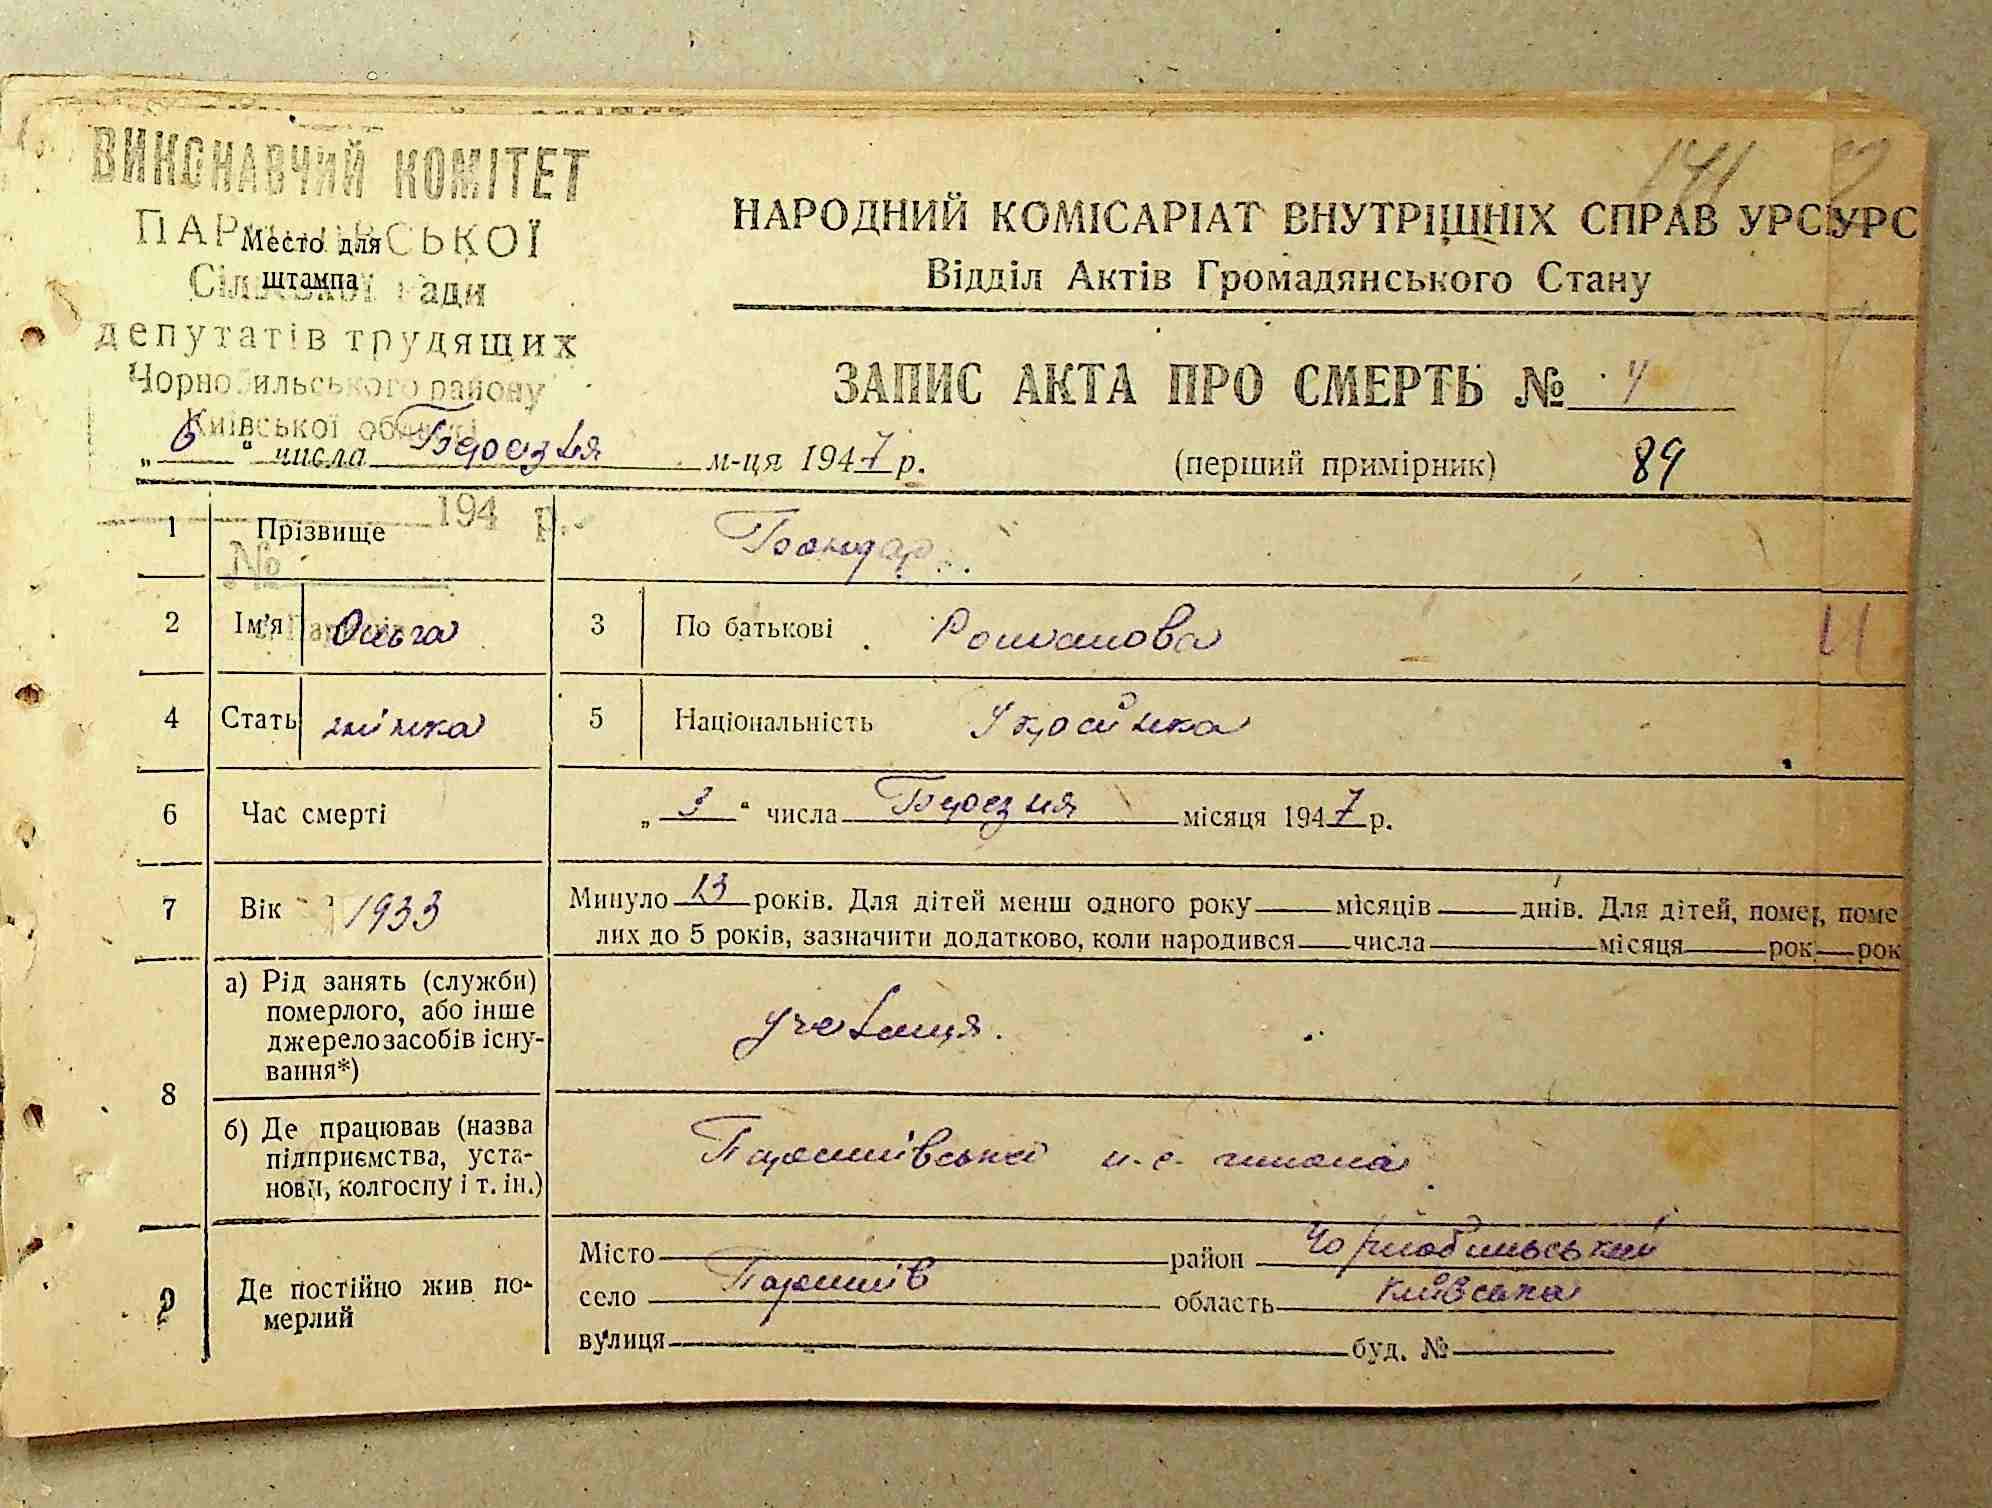 141
ВИКОНАВЧИЙ КОМІТЕТ
ПАРИШІВСЬКОЇ
Место для
штампа
Сільської ради
депутатів трудящих
Чорнобильського району
Київської області
194 р.
№
НАРОДНИЙ КОМІСАРІАТ ВНУТРІШНІХ СПРАВ УРСР УРС
Відділ Актів Громадянського Стану
ЗАПИС АКТА ПРО СМЕРТЬ №
„6“ числа Березня м-ця 1947 р. (перший примірник) 89
1 Прізвище Бондар
2 Ім'я Ольга 3 По батькові Романова
4 Стать жінка 5 Національність Україінка
6 Час смерті „3“ числа Березня місяця 1947 р.
7 Вік 1933 Минуло 13 років. Для дітей менш одного року місяців днів. Для дітей, помер, поме
лих до 5 років, зазначити додатково, коли народився числа місяця рок рок
8 а) Рід занять (служби)
померлого, або інше
джерело засобів існу-
вання*)
учениця.
б) Де працював (назва
підприємства, уста-
нови, колгоспу і т. ін.)
Паришівська н.с. школа
9 Де постійно жив по-
мерлий
Місто район Чорнобильський
село Паришів область Київська
вулиця буд. №